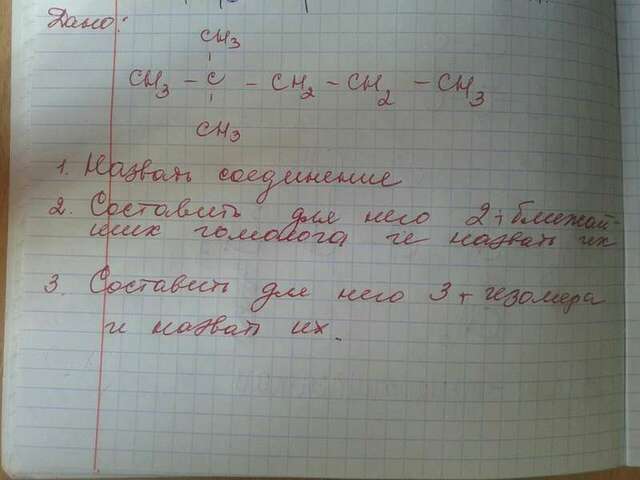 Дано:
CH3
CH3 - C - CH2 - CH2 - CH3
CH3
1. Назвать соединение
2. Составить для него 2+ ближай-
ших гомолога и назвать их
3. Составить для него 3+ изомера
и назвать их.